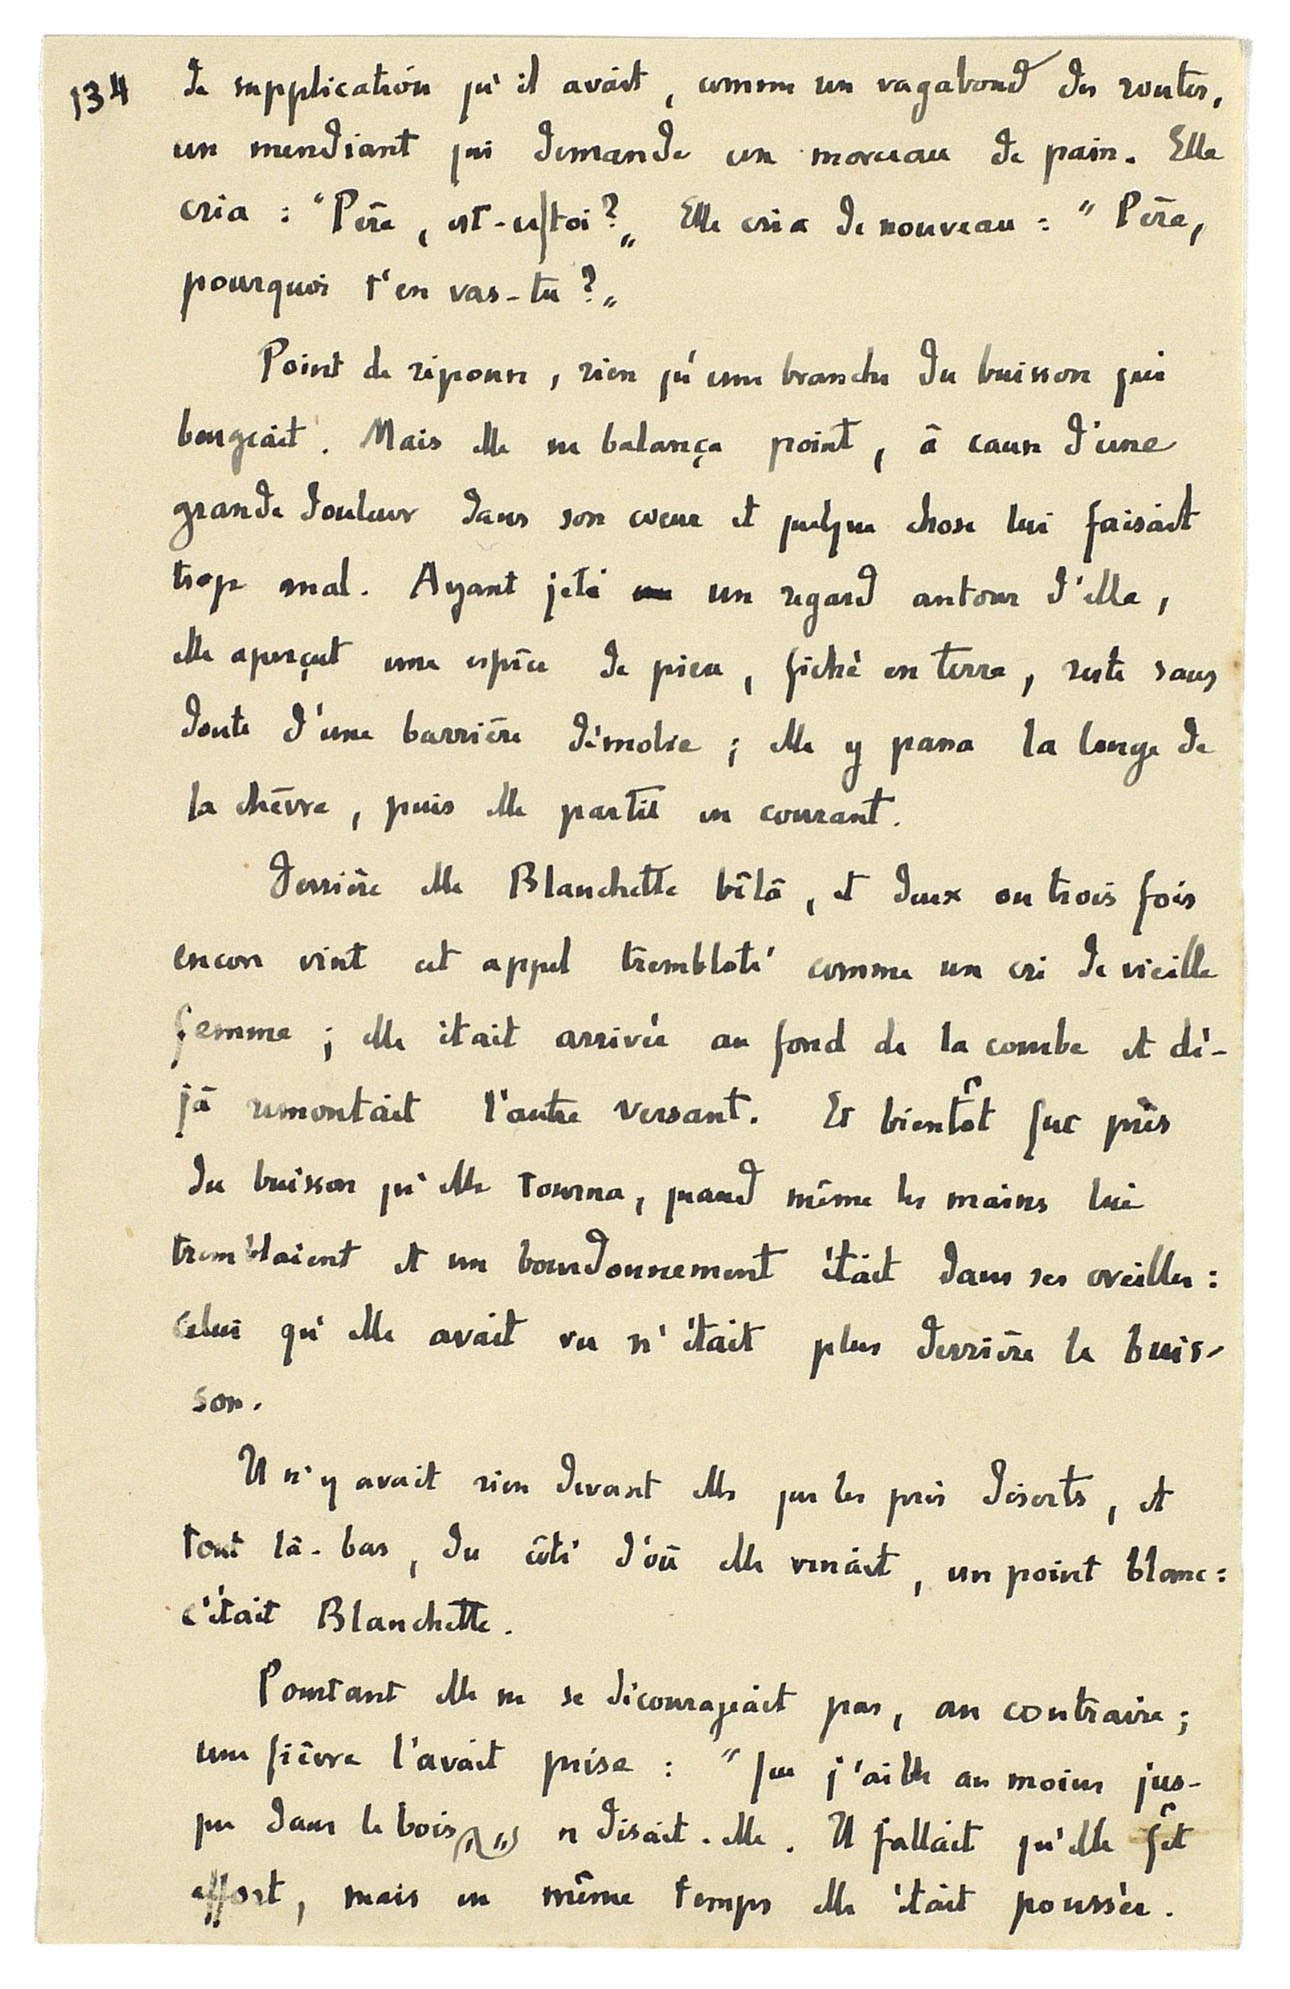 134
de supplication qu'il avait, comme un vagabond des routes,
un mendiant qui demande un morceau de pain. Elle
cria : "Père, est-ce toi ?" Elle cria de nouveau : "Père,
pourquoi t'en vas-tu ?"
Point de réponse, rien qu'une branche du buisson qui
bougeait. Mais elle ne balança point, à cause d'une
grande douleur dans son cœur et quelque chose lui faisait
trop mal. Ayant jeté un regard autour d'elle,
elle aperçut une espèce de pieu, fiché en terre, reste sans
doute d'une barrière démolie ; elle y passa la longe de
la chèvre, puis elle partit en courant.
Derrière elle Blanchette bêla, et deux ou trois fois
encore vint cet appel trembloté comme un cri de vieille
femme ; elle était arrivée au fond de la combe et dé-
jà remontait l'autre versant. Et bientôt fut près
du buisson qu'elle tourna, quand même les mains lui
tremblaient et un bourdonnement était dans ses oreilles :
celui qu'elle avait vu n'était plus derrière le buis-
son.
Il n'y avait rien devant elle que les prés déserts, et
tout là-bas, du côté d'où elle venait, un point blanc :
c'était Blanchette.
Pourtant elle ne se décourageait pas, au contraire ;
une fièvre l'avait prise : "Que j'aille au moins jus-
que dans le bois," se disait-elle. Il fallait qu'elle fît
effort, mais en même temps elle était poussée.